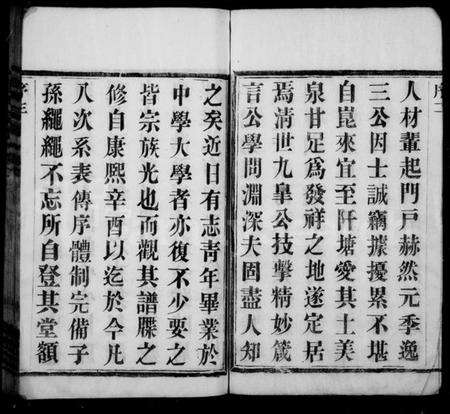 序二
人材輩起門戶赫然元季逸
三公因士誠竊據擾累不堪
自崑來宜至阡塘愛其土美
泉甘足為發祥之地遂定居
焉清世九臯公技擊精妙箴
言公學問淵深夫固盡人知
之矣近日有志青年畢業於
中學大學者亦復不少要之
皆宗族光也而觀其譜牒之
修自康熙辛酉以迄於今凡
八次系表傳序體制完備子
孫繩繩不忘所自登其堂額
序三